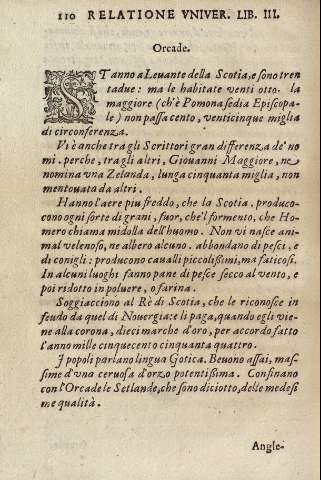 110 RELATIONE VNIVER. LIB. III.
Orcade.
STanno a Leuante della Scotia, e sono tren
tadue: ma le habitate venti otto. la
maggiore (ch'è Pomona sedia Episcopa-
le) non passa cento, venticinque miglia
di circonferenza.
Vi è anche tra gli Scrittori gran differenza de' no
mi. perche, tra gli altri, Giouanni Maggiore, ne
nomina vna Zelanda, lunga cinquanta miglia, non
mentouata da altri.
Hanno l'aere piu freddo, che la Scotia. produco-
cono ogni sorte di grani, fuor, che'l formento, che Ho-
mero chiama midolla dell'huomo. Non vi nasce ani-
mal velenoso, ne albero alcuno. abbondano di pesci, e
di conigli: producono caualli piccolissimi, ma faticosi.
In alcuni luoghi fanno pane di pesce secco al vento, e
poi ridotto in poluere, o farina.
Soggiacciono al Rè di Scotia, che le riconosce in
feudo da quel di Nouergia: e li paga, quando egli vie-
ne alla corona, dieci marche d'oro, per accordo fatto
l'anno mille cinquecento cinquanta quattro.
I popoli parlano lingua Gotica. Beuono assai, mas-
sime d'vna ceruosa d'orzo potentissima. Confinano
con l'Orcade le Setlande, che sono diciotto, delle medesi
me qualità.
Angle-